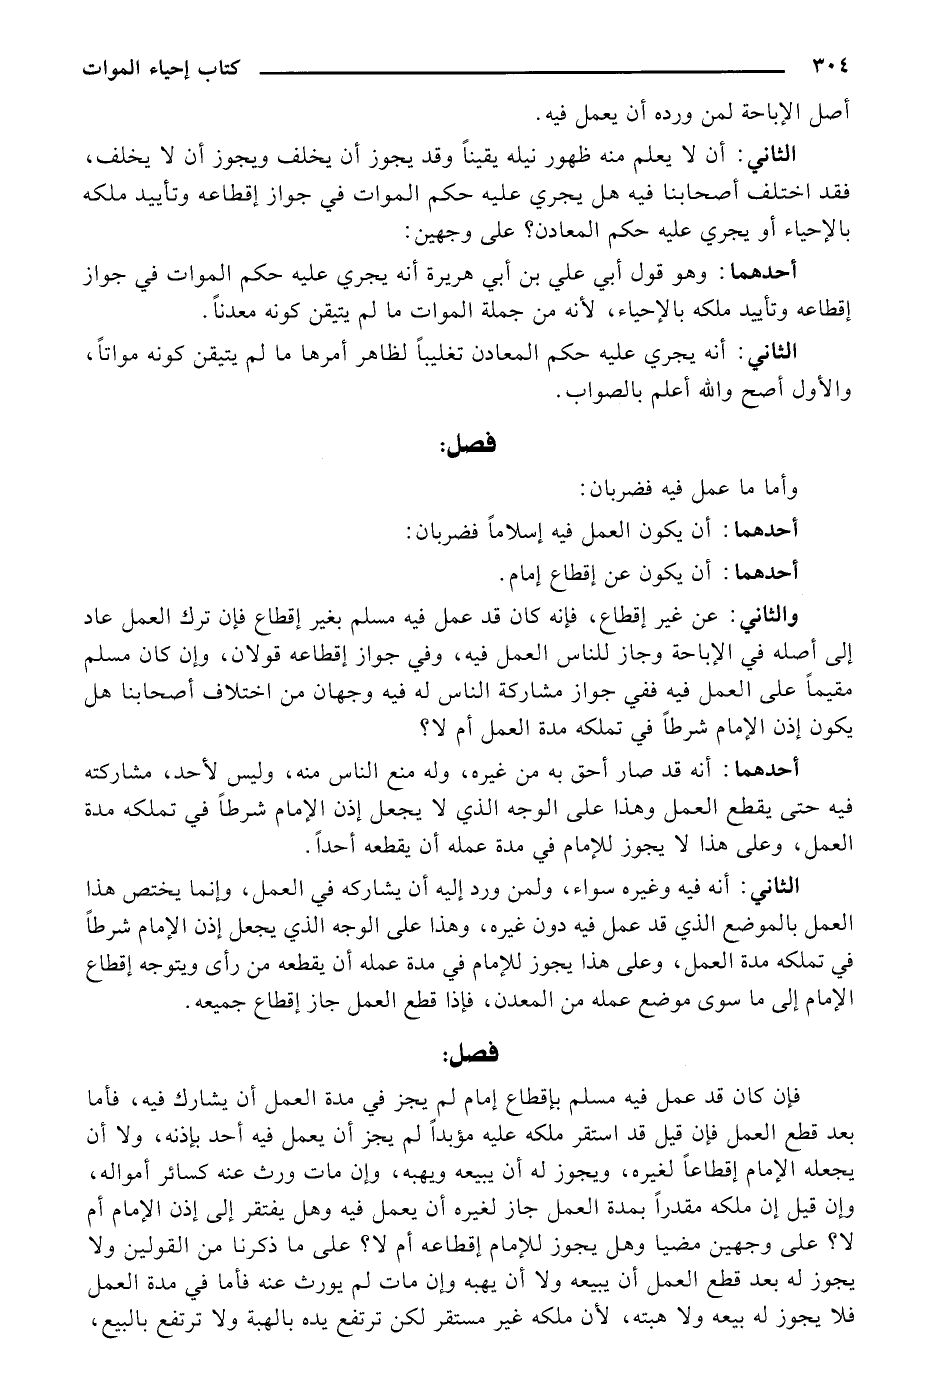 ٣٠٤ كتاب إحياء الموات
أصل الإباحة لمن ورده أن يعمل فيه.
الثاني: أن لا يعلم منه ظهور نيله يقيناً وقد يجوز أن يخلف ويجوز أن لا يخلف،
فقد اختلف أصحابنا فيه هل يجري عليه حكم الموات في جواز إقطاعه وتأييد ملكه
بالإحياء أو يجري عليه حكم المعادن؟ على وجهين:
أحدهما: وهو قول أبي علي بن أبي هريرة أنه يجري عليه حكم الموات في جواز
إقطاعه وتأييد ملكه بالإحياء، لأنه من جملة الموات ما لم يتيقن كونه معدناً.
الثاني: أنه يجري عليه حكم المعادن تغليباً لظاهر أمرها ما لم يتيقن كونه مواتاً،
والأول أصح والله أعلم بالصواب.
فصل:
وأما ما عمل فيه فضربان:
أحدهما: أن يكون العمل فيه إسلاماً فضربان:
أحدهما: أن يكون عن إقطاع إمام.
والثاني: عن غير إقطاع، فإنه كان قد عمل فيه مسلم بغير إقطاع فإن ترك العمل عاد
إلى أصله في الإباحة وجاز للناس العمل فيه، وفي جواز إقطاعه قولان، وإن كان مسلم
مقيماً على العمل فيه ففي جواز مشاركة الناس له فيه وجهان من اختلاف أصحابنا هل
يكون إذن الإمام شرطاً في تملكه مدة العمل أم لا؟
أحدهما: أنه قد صار أحق به من غيره، وله منع الناس منه، وليس لأحد، مشاركته
فيه حتى يقطع العمل وهذا على الوجه الذي لا يجعل إذن الإمام شرطاً في تملكه مدة
العمل، وعلى هذا لا يجوز للإمام في مدة عمله أن يقطعه أحداً.
الثاني: أنه فيه وغيره سواء، ولمن ورد إليه أن يشاركه في العمل، وإنما يختص هذا
العمل بالموضع الذي قد عمل فيه دون غيره، وهذا على الوجه الذي يجعل إذن الإمام شرطاً
في تملكه مدة العمل، وعلى هذا يجوز للإمام في مدة عمله أن يقطعه من رأى ويتوجه إقطاع
الإمام إلى ما سوى موضع عمله من المعدن، فإذا قطع العمل جاز إقطاع جميعه.
فصل:
فإن كان قد عمل فيه مسلم بإقطاع إمام لم يجز في مدة العمل أن يشارك فيه، فأما
بعد قطع العمل فإن قيل قد استقر ملكه عليه مؤبداً لم يجز أن يعمل فيه أحد بإذنه، ولا أن
يجعله الإمام إقطاعاً لغيره، ويجوز له أن يبيعه ويهبه، وإن مات ورث عنه كسائر أمواله،
وإن قيل إن ملكه مقدراً بمدة العمل جاز لغيره أن يعمل فيه وهل يفتقر إلى إذن الإمام أم
لا؟ على وجهين مضيا وهل يجوز للإمام إقطاعه أم لا؟ على ما ذكرنا من القولين ولا
يجوز له بعد قطع العمل أن يبيعه ولا أن يهبه وإن مات لم يورث عنه فأما في مدة العمل
فلا يجوز له بيعه ولا هبته، لأن ملكه غير مستقر لكن ترتفع يده بالهبة ولا ترتفع بالبيع،